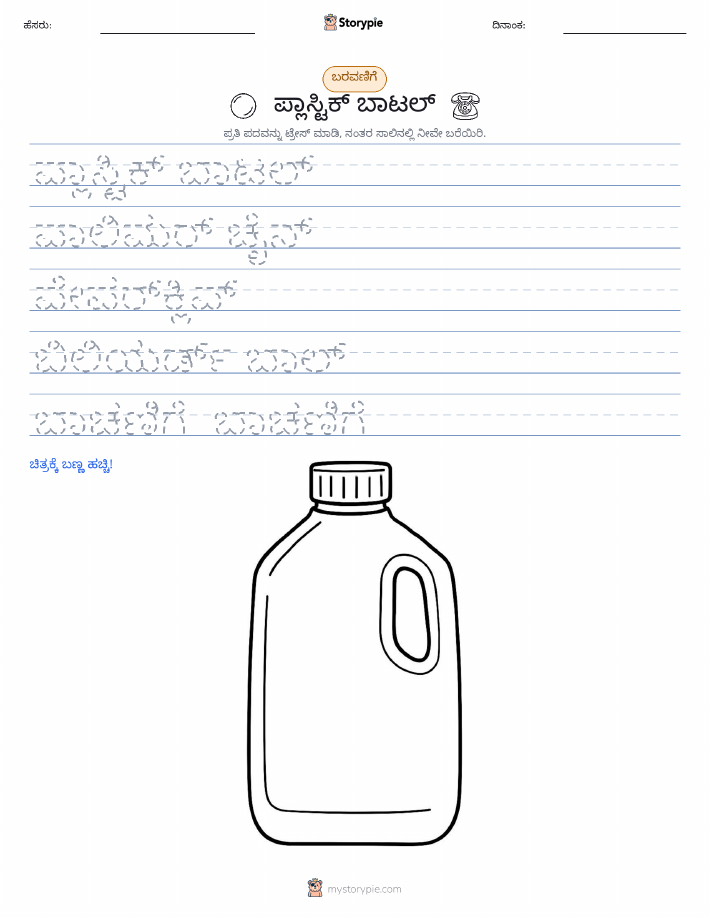 ಹೆಸರು: Storypie ದಿನಾಂಕ:
ಬರವಣಿಗೆ
ಪ್ಲಾಸ್ಟಿಕ್ ಬಾಟಲ್
ಪ್ರತಿ ಪದವನ್ನು ಟ್ರೇಸ್ ಮಾಡಿ, ನಂತರ ಸಾಲಿನಲ್ಲಿ ನೀವೇ ಬರೆಯಿರಿ.
ಪ್ಲಾಸ್ಟಿಕ್ ಬಾಟಲ್
ಪಾಲಿಮರ್ ಚೈನ್
ಪೇಪರ್‌ಕ್ಲಿಪ್
ಬಿಲಿಯರ್ಡ್ ಬಾಲ್
ಬಾಚಣಿಗೆ ಬಾಚಣಿಗೆ
ಚಿತ್ರಕ್ಕೆ ಬಣ್ಣ ಹಚ್ಚಿ!
mystorypie.com